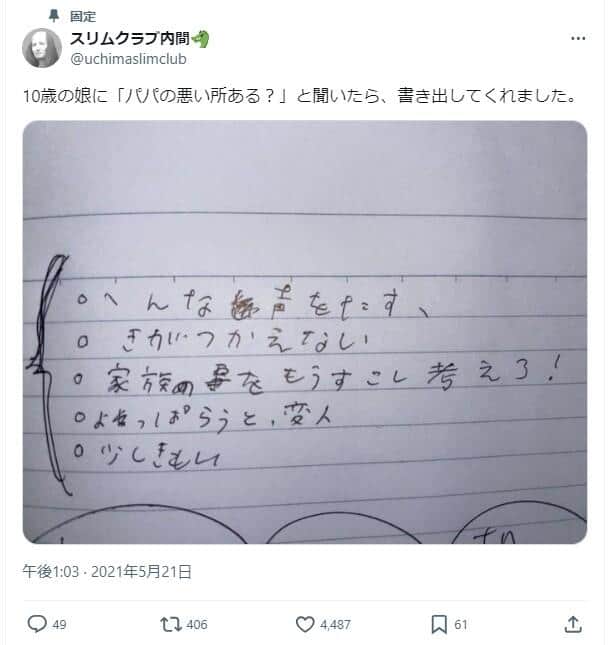 固定
スリムクラブ内間🐴
@uchimaslimclub
10歳の娘に「パパの悪い所ある？」と聞いたら、書き出してくれました。
○へんな声をだす、
○きがつかえない
○家族の事をもうすこし考えろ！
○よっぱらうと、変人
○少しきもい
午後1:03 · 2021年5月21日
49 406 4,487 61